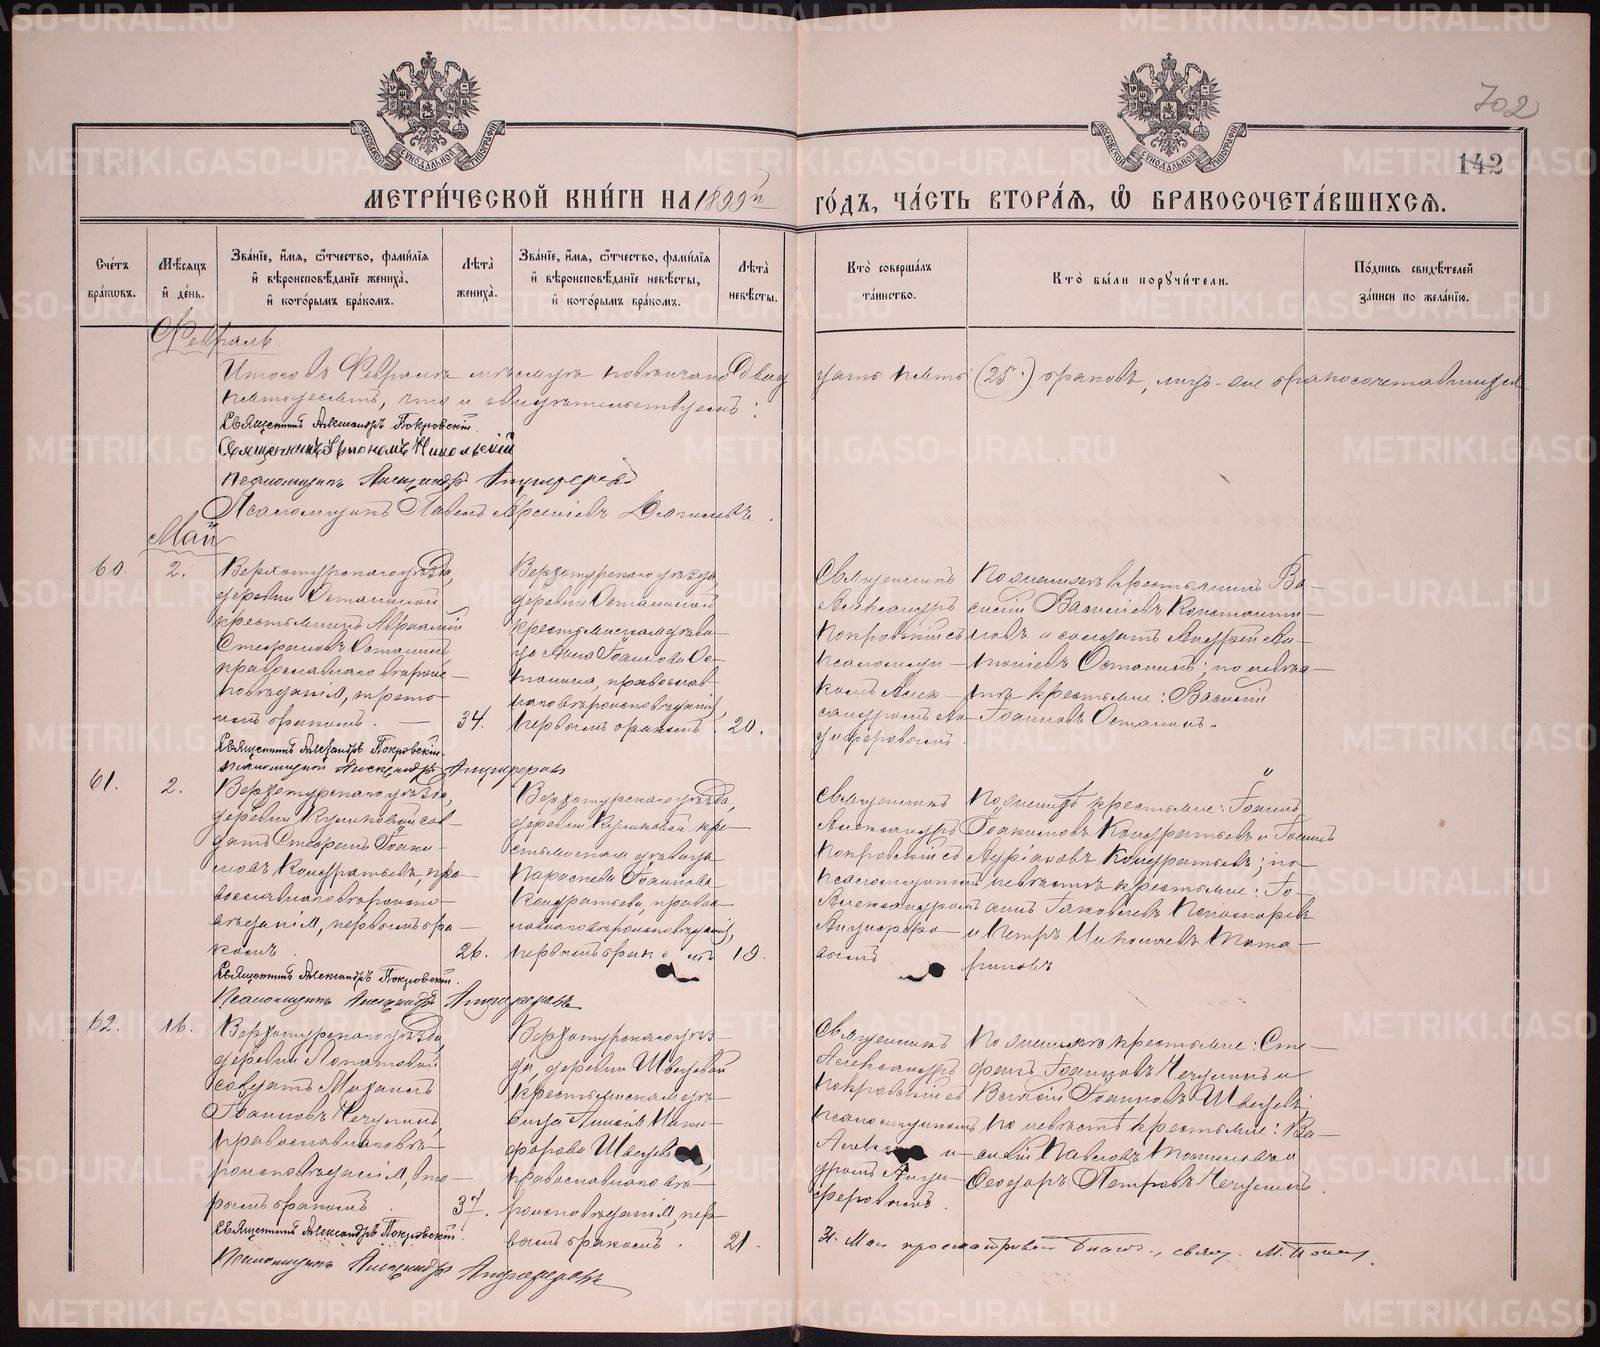 702
142
МОСКОВСКОЙ СѴНОДАЛЬНОЙ ТИПОГРАФІИ
МОСКОВСКОЙ СѴНОДАЛЬНОЙ ТИПОГРАФІИ
МЕТРИ́ЧЕСКОЙ КНИ́ГИ НА 1899й ГО́ДЪ, ЧА́СТЬ ВТОРА́Я, Ѡ҆ БРАКОСОЧЕТА́ВШИХСЯ.
Сче́тъ бра́кѡвъ.
Мѣ́сяцъ и҆ де́нь.
Зва́нїе, и҆́мя, ѻ҆́тчество, фами́лїя и҆ вѣроисповѣ́данїе жениха̀, и҆ кото́рымъ бра́комъ.
Лѣта̀ жениха̀.
Зва́нїе, и҆́мя, ѻ҆́тчество, фами́лїя и҆ вѣроисповѣ́данїе невѣ́сты, и҆ кото́рымъ бра́комъ.
Лѣта̀ невѣ́сты.
Кто̀ соверша́лъ та́инство.
Кто̀ бы́ли поручи́тели.
По́дпись свидѣ́телей за́писи по жела́нїю.
Февраль
Итого въ Февралѣ мѣсяцѣ повѣнчано двадцать пять (25) браковъ, лицъ-же бракосочетавшихся
пятьдесятъ, что и свидѣтельствуемъ:
Священникъ Александръ Покровскій.
Священникъ Никольскій
Псаломщикъ Александръ Анциферовъ
Псаломщикъ Павелъ Арсеніевъ
Май
60.
2.
Верхотурскаго уѣзда,
деревни Останиной
крестьянинъ Авраамій
Стефановъ Останинъ
православнаго вѣроис-
повѣданія, треть-
имъ бракомъ. —
34.
Верхотурскаго уѣзда,
деревни Останиной
крестьянская дѣви-
ца Анна Іоаннова Ос-
танина, православ-
наго вѣроисповѣданія,
первымъ бракомъ.
20.
Священникъ
Александръ
Покровскій съ
псаломщи-
комъ Алек-
сандромъ Ан-
циферовымъ.
По женихѣ крестьянинъ Ва-
силій Васильевъ Константи-
новъ и солдатъ Андрей Ан-
тоніевъ Останинъ; по невѣс-
тѣ крестьяне: Василій
Іоанновъ Останинъ.
Священникъ Александръ Покровскій.
Псаломщикъ Александръ Анциферовъ
61.
2.
Верхотурскаго уѣзда,
деревни Куликовой сол-
датъ Стефанъ Іоаки-
мовъ Кондратьевъ, пра-
вославнаго вѣроиспо-
вѣданія, первымъ бра-
комъ.
26.
Верхотурскаго уѣзда,
деревни Куликовой кре-
стьянская дѣвица
Параскева Іоаннова
Кондратьева, правос-
лавнаго вѣроисповѣданія,
первымъ бракомъ
19.
Священникъ
Александръ
Покровскій съ
псаломщикомъ
Александромъ
Анциферо-
вымъ.
По женихѣ крестьяне: Іоаннъ
Іоакимовъ Кондратьевъ и Іоаннъ
Адріановъ Кондратьевъ; по
невѣстѣ крестьяне: Іо-
аннъ Іаковлевъ Пономаревъ
и Петръ Николаевъ Тата-
риновъ
Священникъ Александръ Покровскій.
Псаломщикъ Александръ Анциферовъ
62.
16.
Верхотурскаго уѣзда,
деревни Лопатковой
солдатъ
Іоанновъ Чечулинъ,
православнаго вѣ-
роисповѣданія, вто-
рымъ бракомъ.
37.
Верхотурскаго уѣз-
да, деревни Швецовой
крестьянская дѣ-
вица Анисія Ники-
форова Швецова,
православнаго вѣ-
роисповѣданія, пер-
вымъ бракомъ.
21.
Священникъ
Александръ
Покровскій съ
псаломщикомъ
Алексан-
дромъ Анци-
феровымъ.
По женихѣ крестьяне: Сте-
фанъ Іоанновъ Чечулинъ и
Іоанновъ Швецовъ;
по невѣстѣ крестьяне: Ва-
силій Павловъ и
Ѳеодоръ Петровъ Чечулинъ.
Священникъ Александръ Покровскій.
Псаломщикъ Александръ Анциферовъ
За Май
METRIKI.GASO-URAL.RU